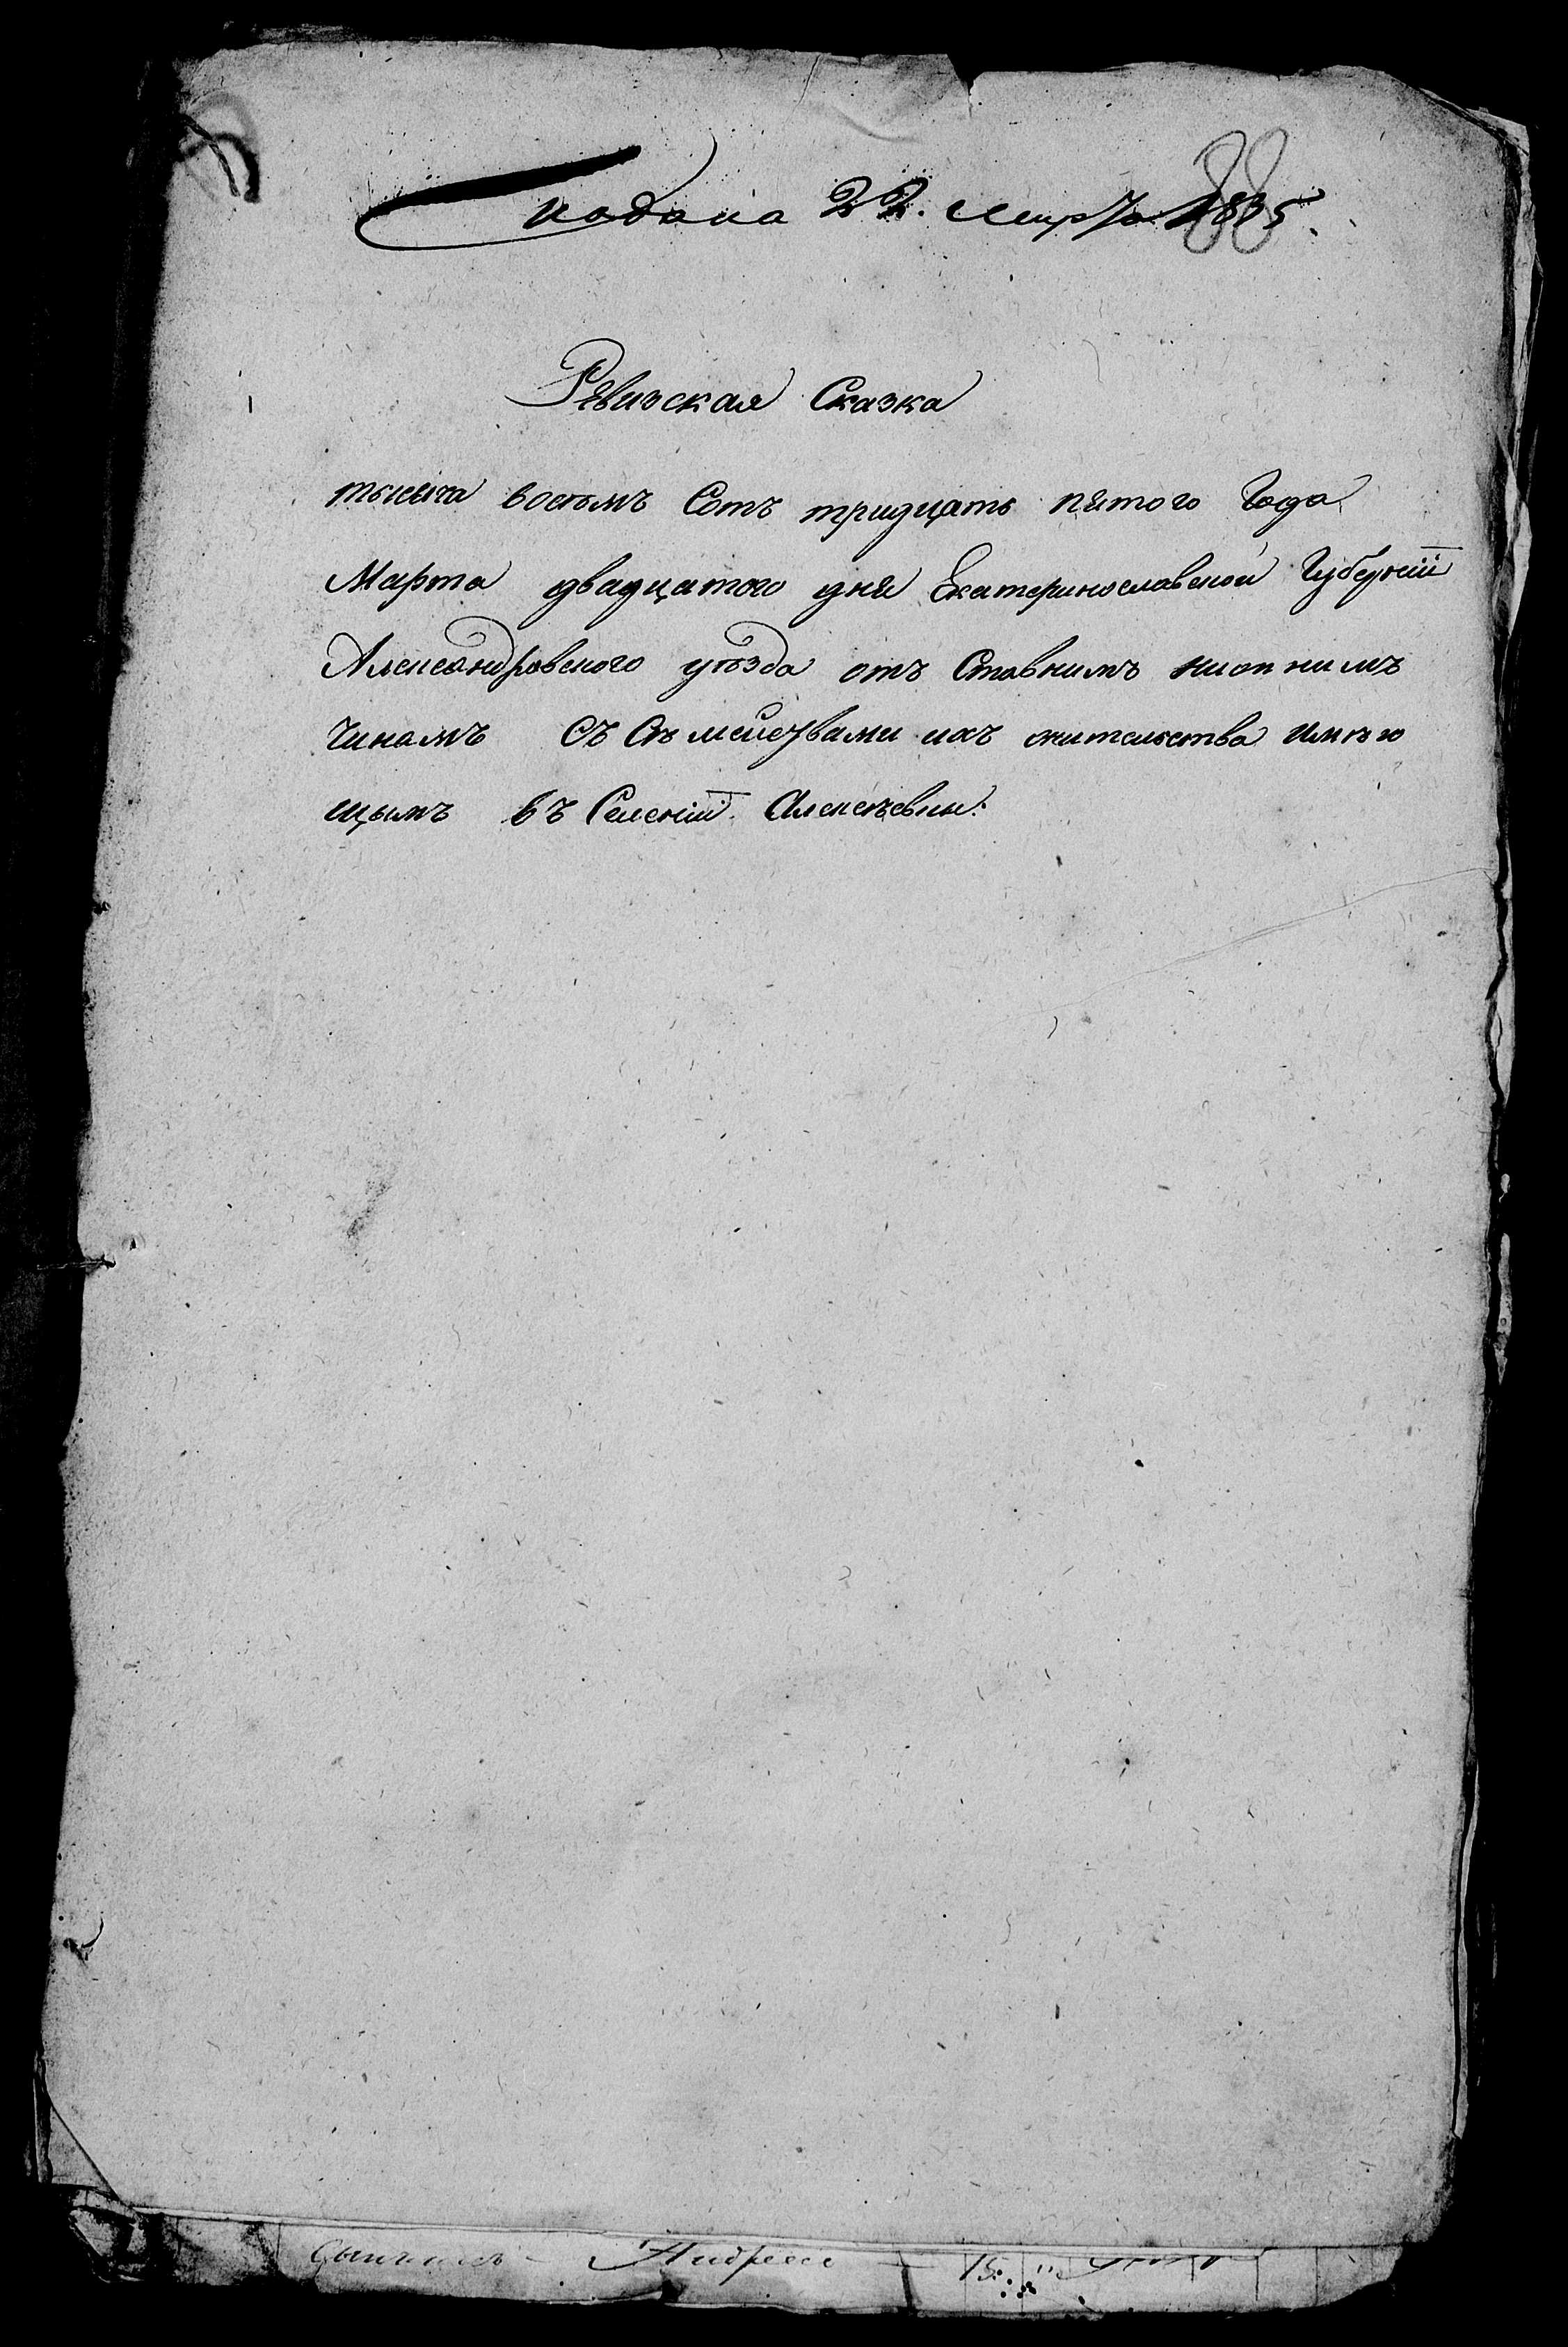 подана 22. Марта 1835.
88
Ревизская Сказка
тысяча восемъ Сотъ тридцать пятого Года
Марта двадцатого дня Екатеринославской Губерніи
Александровского уѣзда отъ Ставнимъ нижнимъ
чинамъ Съ Сѣмействами ихъ жительства имѣю
щымъ въ Селеніи Алексѣевки:
Андреи 15